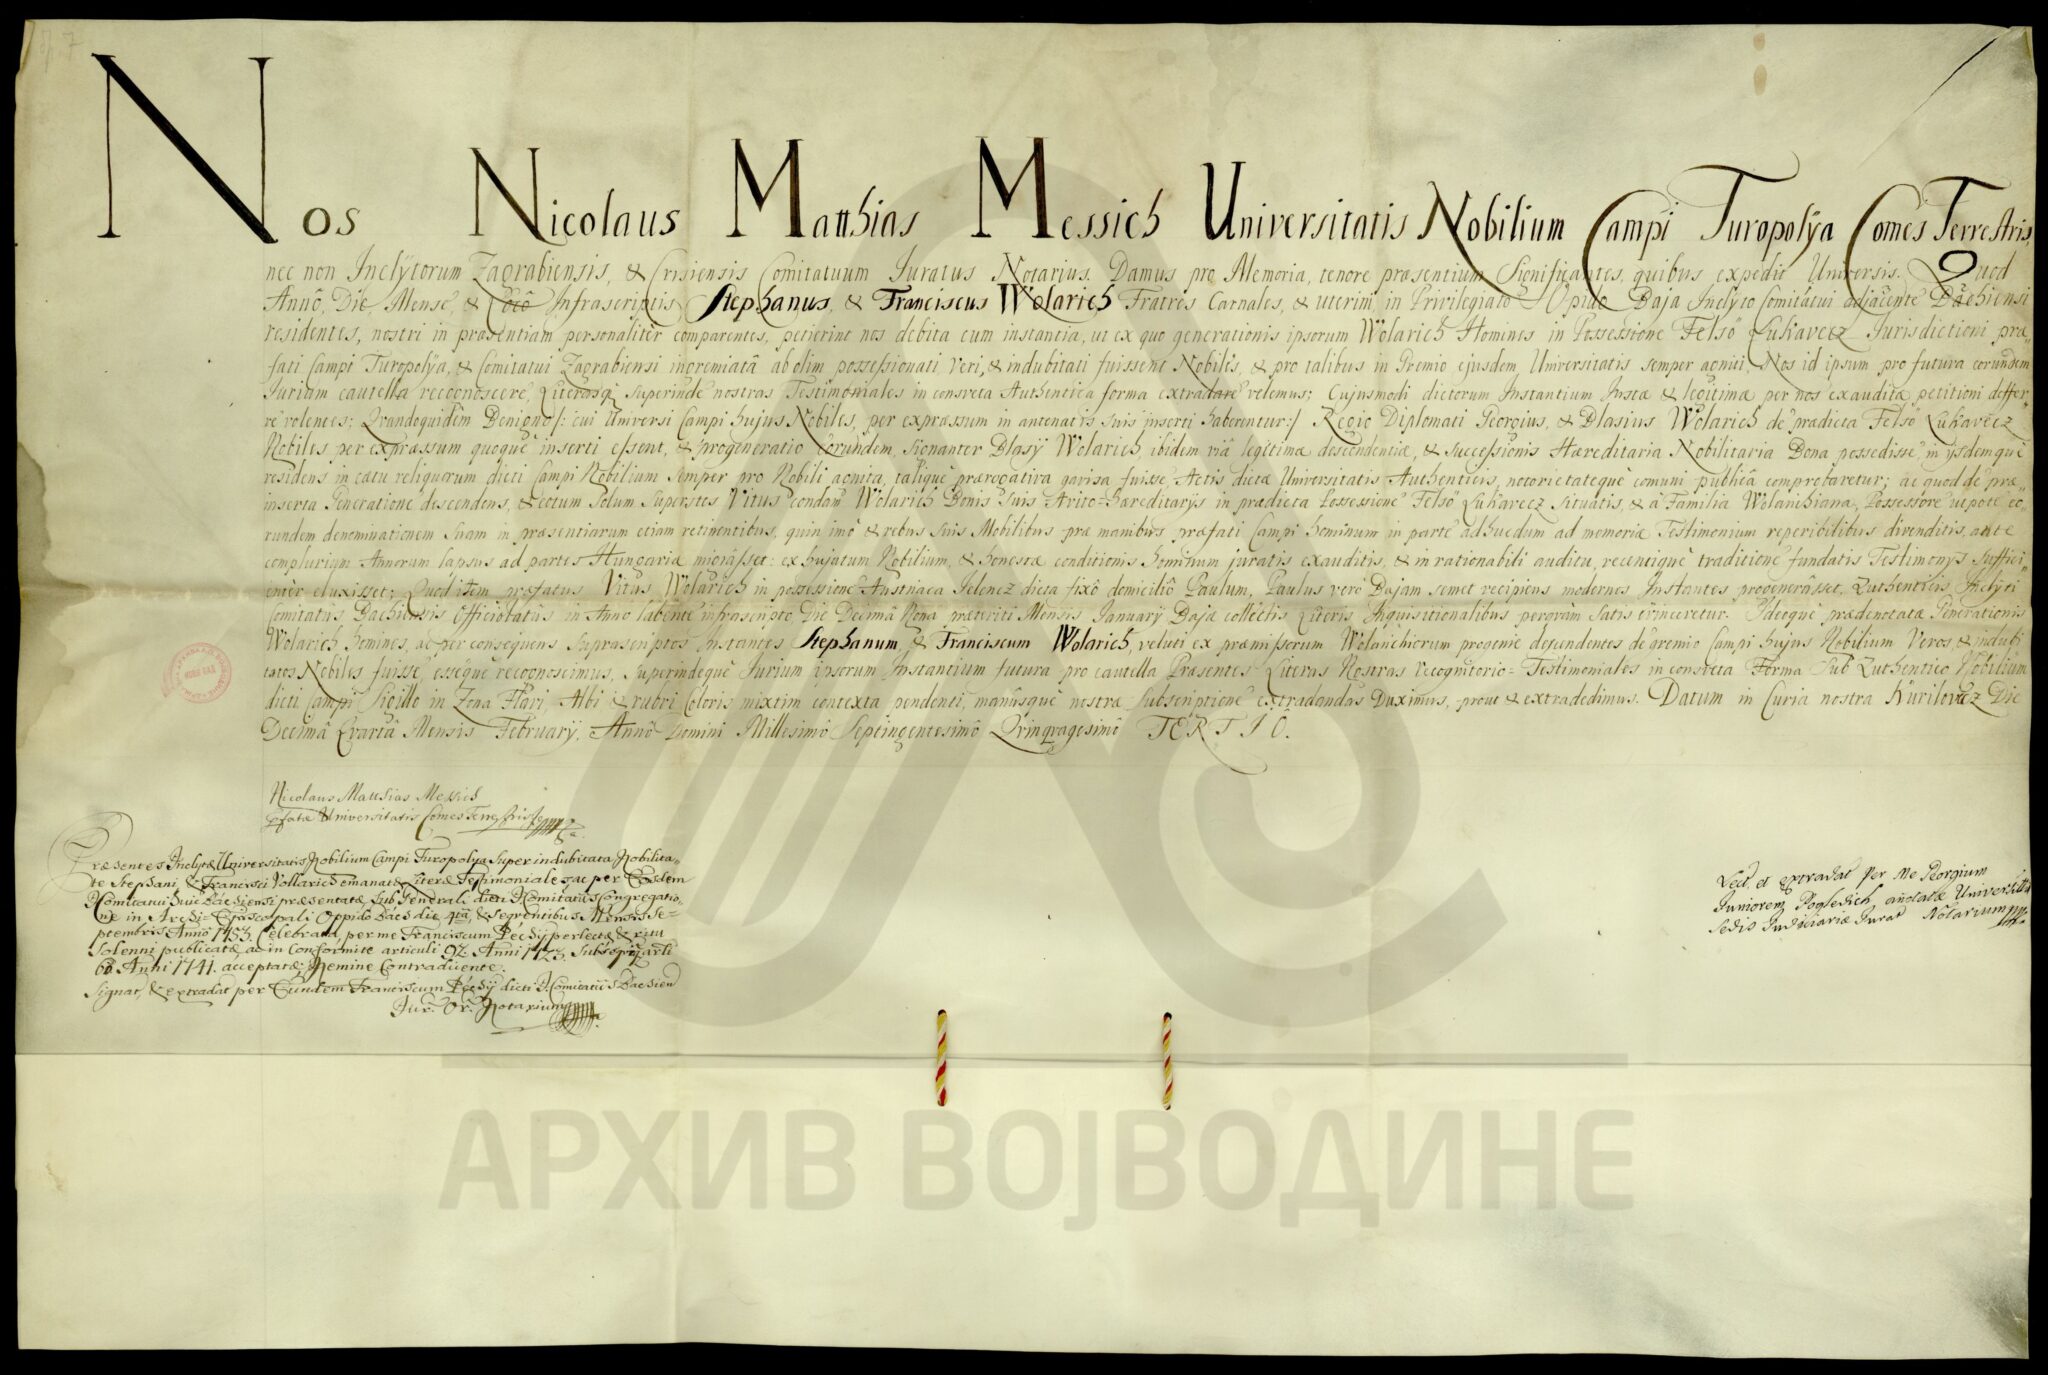 Nos Nicolaus Matthias Messich Universitatis Nobilium Campi Turopolÿa Comes Terrestris,
nec non Inclÿtorum Zagrabiensis, & Crisiensis Comitatuum Juratus Notarius. Damus pro Memoria, tenore præsentium Significantes, quibus expedit Universis. Quod
Annô, Die, Mense, & Infrascriptis Stephanus, & Franciscus Wolarich Fratres Carnales, & uterini, in Privilegiato Opido Baja Inclÿto Comitatui adjacente Bachiensi
residentes, nostri in præsentiam personaliter comparentes, petierint nos debita cum instantia, ut ex quo generationis ipsorum Wolarich Homines in Possessione Felsö Lukavecz Jurisdictioni præ=
fati Campi Turopolÿa, & Comitatui Zagrabiensi ingremiatâ ab olim possessionati, Veri, & indubitati fuissent Nobiles, & pro talibus in Gremio ejusdem Universitatis semper agniti, Nos id ipsum pro futura eorundem
Jurium cautella recognoscere, Literasq; Superinde nostras Testimoniales in consveta Authentica forma extradare velemus; Cujusmodi dictorum Instantium Justa & legitima per nos exaudita petitioni deffer=
re volentes; Quandoquidem Benigno /: cui Universi Campi hujus Nobiles, per expræssum in antenatis suis inserti haberentur :/ Regio Diplomati Georgius, & Blasius Wolarich de prædicta Felsö Lukavecz
Nobiles per expræssum quoque inserti essent, & progeneratio eorundem, Signanter Blasÿ Wolarich, ibidem viâ legitimæ descendentiæ, & Successionis Hæreditaria Nobilitaria Bona possedisse, in ÿsdemque
residens in cætu reliquorum dicti Campi Nobilium Semper pro Nobili agnita, talique prærogativa gavisa fuisse, Actis dictæ Universitatis Authenticis, notorietateque comuni publicâ comprobaretur; ac quod de præ=
inserta Generatione descendens, & eotum Solum Superstes Vitus condam Wolarich Bonis Suis Avito-hæreditarÿs in prædicta Possessione Felsö Lukavecz Situatis, & â Familia Wolarichiana, Possessore utpote eo=
rundem denominationem Suam in præsentiarum etiam retinentibus, quin imô & rebus Suis Mobilibus præ manibus præfati Campi hominum in parte adhucdum ad memoriæ Testimonium reperibilibus divenditis, ante
complurium Annorum lapsus ad partes Hungariæ migrâsset: ex hujatum Nobilium, & honestæ conditionis hominum juratis exauditis, & in rationabili auditu, recentique traditione fundatis Testimonÿs Suffici=
enter eluxisset; Quod item præfatus Vitus Wolarich in possessione Austriaca Jelencz dicta fixô domiciliô Paulum, Paulus verô Bajam semet recipiens modernos Instantes progenerâsset, Authenticis Inclÿti
Comitatûs Bachiensis Officiolatûs in Anno labente infrascripto, Die Decimâ Nonâ præteriti Mensis Januarÿ Bajæ collectis Literis Inquisitionalibus pergvàm Satis evinceretur. Ideoque prædenotatæ Generationis
Wolarich homines, ac per consequens Suprascriptos Instantes Stephanum, & Franciscum Wolarich, veluti ex præmissorum Wolarichiorum progenie descendentes de gremio Campi hujus Nobilium Veros, & indubi
tatos Nobiles fuisse, esseque recognoscimus, Superindeque Jurium ipsorum Instantium futura pro cautella Præsentes Literas Nostras recognitorio-Testimoniales in consveta Forma Sub Authentico Nobilium
dicti Campi Sigillo in Zona Flavi, Albi & rubri Coloris mixtim contexta pendenti, manûsque nostræ Subscriptione extradandas Duximus, prout & extradedimus. Datum in Curia nostra Kurilovecz Die
Decimâ Quartâ Mensis Februarÿ, Annô Domini Millesimô Septingentesimô Quinquagesimô TERTIÔ.
Nicolaus Matthias Messich
pfatæ Universitatis Comes Terrestris
Præsentes Inclÿtæ Universitatis Nobilium Campi Turopolya Super indubitata Nobilita=
te Stephani, & Francisci Vollarich emanatæ Literæ Testimoniales, ac per Eosdem
I Comitatui huic Bácsiensi præsentatæ, Sub Generali dicti I Comitatûs Congregatio=
ne in Archi-Episcopali Oppido Bács die 4ta, & Seqventibus Mensis Se=
ptembris Annô 1753. Celebrata, per me Franciscum Pécsÿ perlectæ, & ritu
solenni publicatæ, ac in Conformitate articuli 92. Anni 1723. Subseqvi artli
68 Anni 1741. acceptatæ; Nemine Contradicente.
Signat, & extradat per Eundem Franciscum Pécsÿ dicti I. Comitatûs Bácsien
Jur. Or. Notarium
Lect. et extradat per Me Georgium
Juniorem Pogledich añotatæ Universittis
Sedis Judiciariæ Jurat Notarium
АРХИВ ВОЈВОДИНЕ